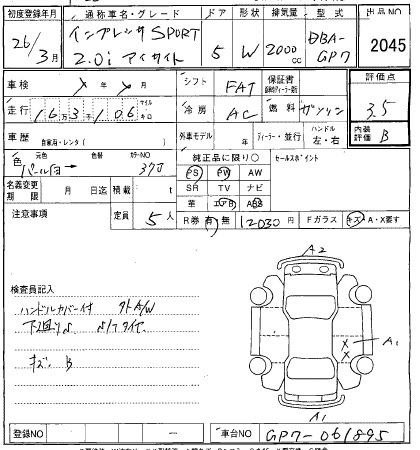 初度登録年月 通称車名・グレード ドア 形状 排気量 型式 出品NO
26年3月 インプレッサ SPORT 2.0i アイサイト 5 W 2000cc DBA-GP7 2045
車検 年 月 シフト FAT 保証書 評価点
走行 163106 マイル キロ 冷房 AC 燃料 ガソリン 3.5
車歴 自家用・レンタ( ) 外車モデル 年 ディーラー・並行 ハンドル 左・右 内装評価 B
色 元色 色替 カラーNO 純正品に限り○ セールスポイント
パール白→ 37J PS PW AW
名義変更期限 月 日迄 積載 t SR TV ナビ
注意事項 定員 5人 革 エアB ABS
R券 有・無 12030円 Fガラス キズ・A・X要す
A2
検査員記入
ハンドルカバー付 外A/W
下廻りサ
キズ B
X
X
A1
A1
登録NO — 車台NO GP7-061895